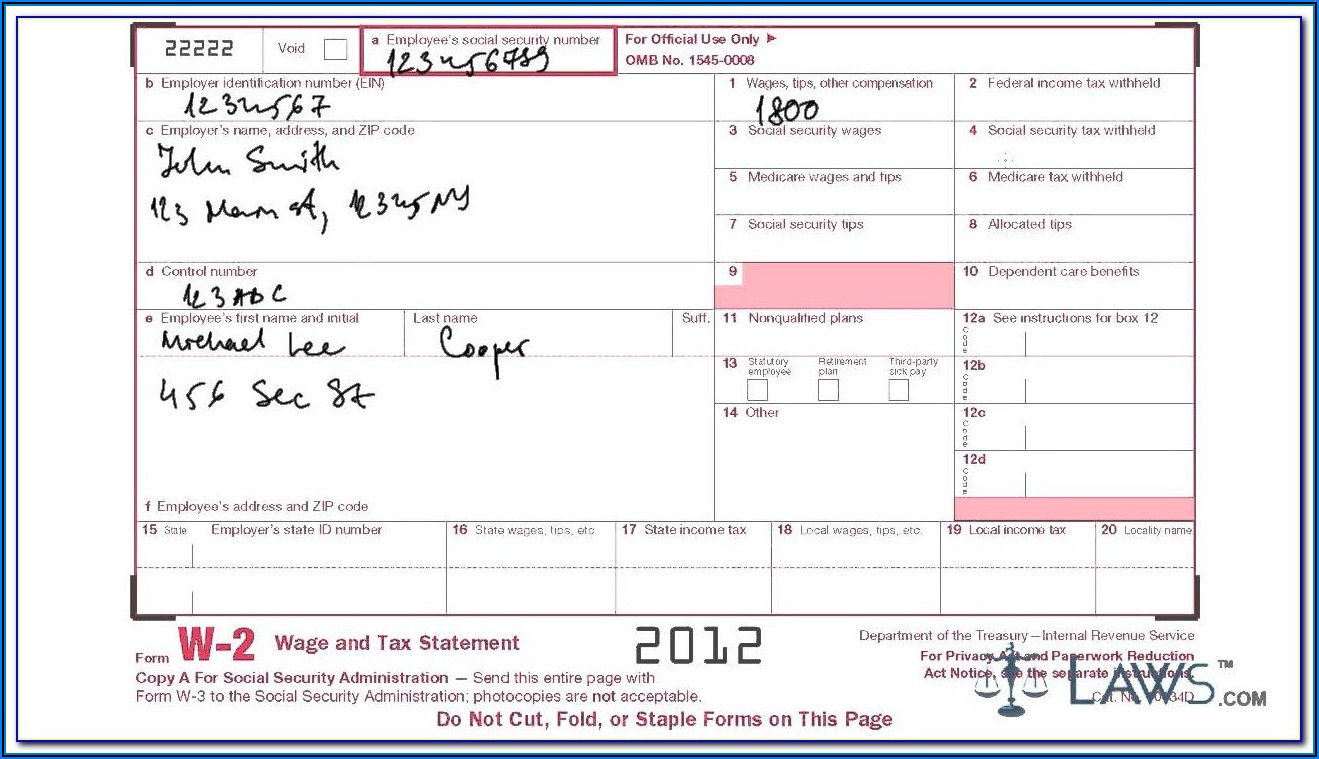 22222
Void
a Employee's social security number
123456789
For Official Use Only ►
OMB No. 1545-0008
b Employer identification number (EIN)
1234567
1 Wages, tips, other compensation
1800
2 Federal income tax withheld
c Employer's name, address, and ZIP code
John Smith
123 Main st, 12345 NY
3 Social security wages
4 Social security tax withheld
5 Medicare wages and tips
6 Medicare tax withheld
7 Social security tips
8 Allocated tips
d Control number
123 ABC
9
10 Dependent care benefits
e Employee's first name and initial
Last name
Suff.
Michael Lee
Cooper
456 Sec St
11 Nonqualified plans
12a See instructions for box 12
Code
13 Statutory employee
Retirement plan
Third-party sick pay
12b
Code
14 Other
12c
Code
12d
Code
f Employee's address and ZIP code
15 State
Employer's state ID number
16 State wages, tips, etc.
17 State income tax
18 Local wages, tips, etc.
19 Local income tax
20 Locality name
Form W-2 Wage and Tax Statement
2012
Department of the Treasury—Internal Revenue Service
For Privacy Act and Paperwork Reduction
Act Notice, see the separate instructions.
Copy A For Social Security Administration — Send this entire page with
Form W-3 to the Social Security Administration; photocopies are not acceptable.
Cat. No.
Do Not Cut, Fold, or Staple Forms on This Page
LAWS™.COM